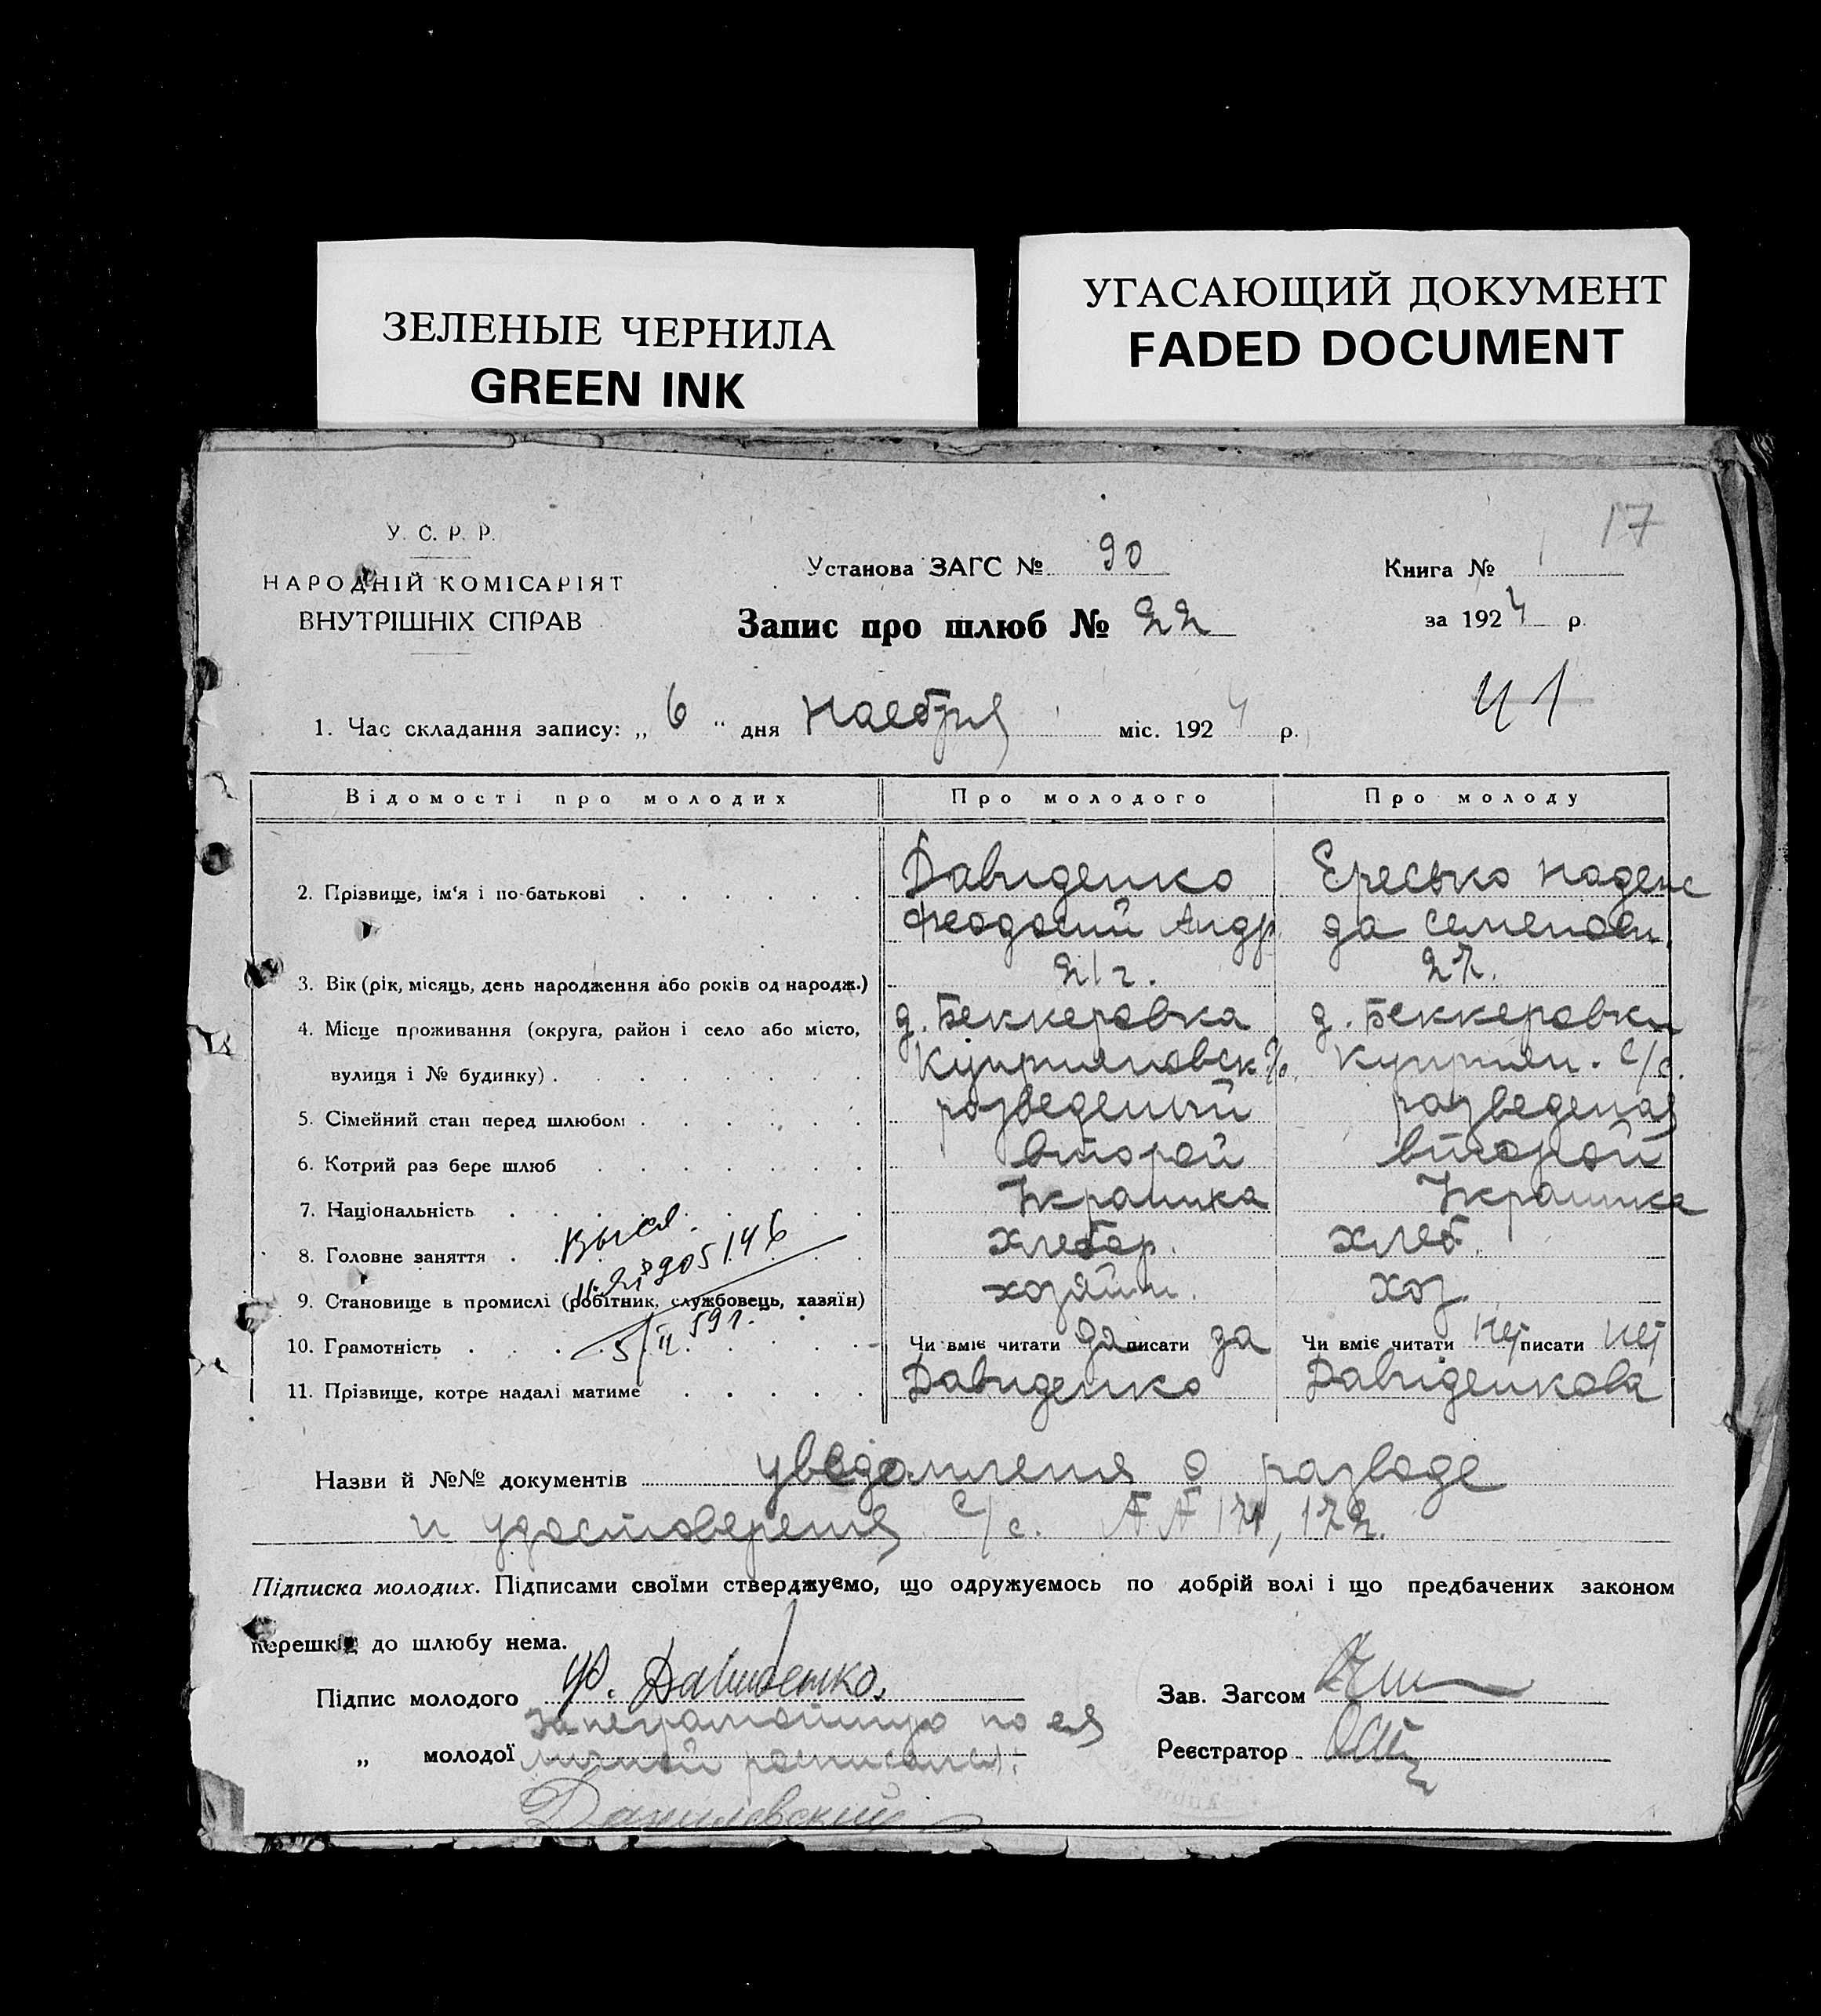 ЗЕЛЕНЫЕ ЧЕРНИЛА
GREEN INK
УГАСАЮЩИЙ ДОКУМЕНТ
FADED DOCUMENT
17
У. С. Р. Р.
НАРОДНІЙ КОМІСАРІЯТ
ВНУТРІШНІХ СПРАВ
Установа ЗАГС № 90
Запис про шлюб № 22
Книга № 1
за 1924 р.
41
1. Час складання запису: „ 6 “ дня Наебрия міс. 1924 р.
Відомості про молодих Про молодого Про молоду
2. Прізвище, ім‘я і по-батькові Давиденко Ересько Надеж
Феодосий Андр да Семеновн.
3. Вік (рік, місяць, день народження або років од народж.) 21 г. 27.
4. Місце проживання (округа, район і село або місто, д. Беккеровка д. Беккеровки
вулиця і № будинку) Куприяновск. Куприян. С/с.
5. Сімейний стан перед шлюбом разведеный разведеная
6. Котрий раз бере шлюб второй второй
7. Національність Украинка Украинка
8. Головне заняття хлебор. хлеб.
9. Становище в промислі (робітник, службовець, хазяїн) хозяин. хоз.
10. Грамотність Чи вміє читати да писати да Чи вміє читати нет писати нет
11. Прізвище, котре надалі матиме Давиденко Давиденкова
Назви й №№ документів уведомления о разводе
и удостоверения С/с.
Підписка молодих. Підписами своїми стверджуємо, що одружуємось по добрій волі і що предбачених законом
перешкід до шлюбу нема.
Підпис молодого Ф. Давиденко. Зав. Загсом
За неграмотную по ея
„ молодої личной росписался: Реєстратор
Данилевский